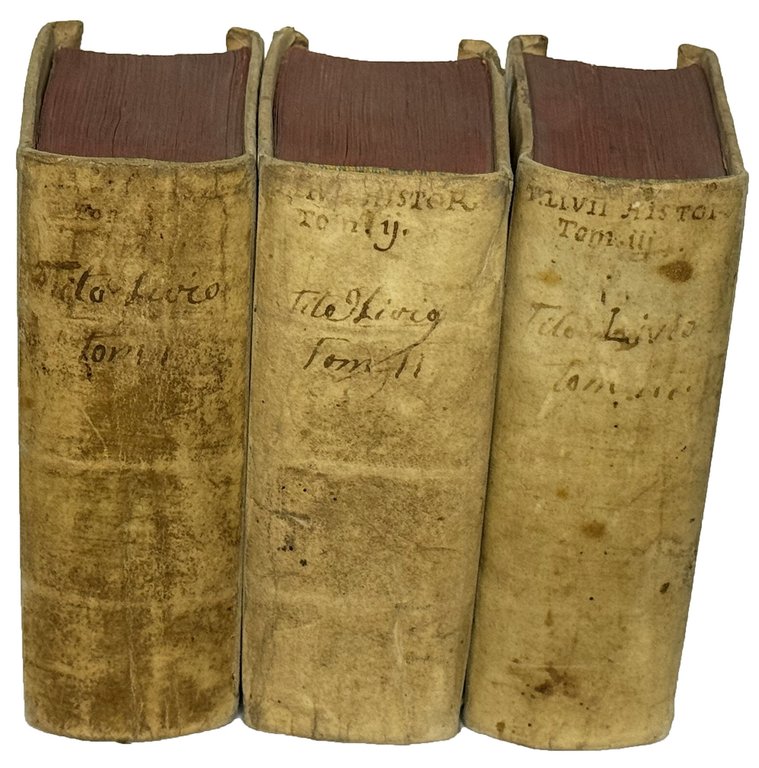 Tom
Tito Livio
tom. I
LIVII HISTOR.
Tom. ij.
Tito Livio
Tom. II
T. LIVII HISTOR.
Tom. iij.
Tito Livio
tom. III.